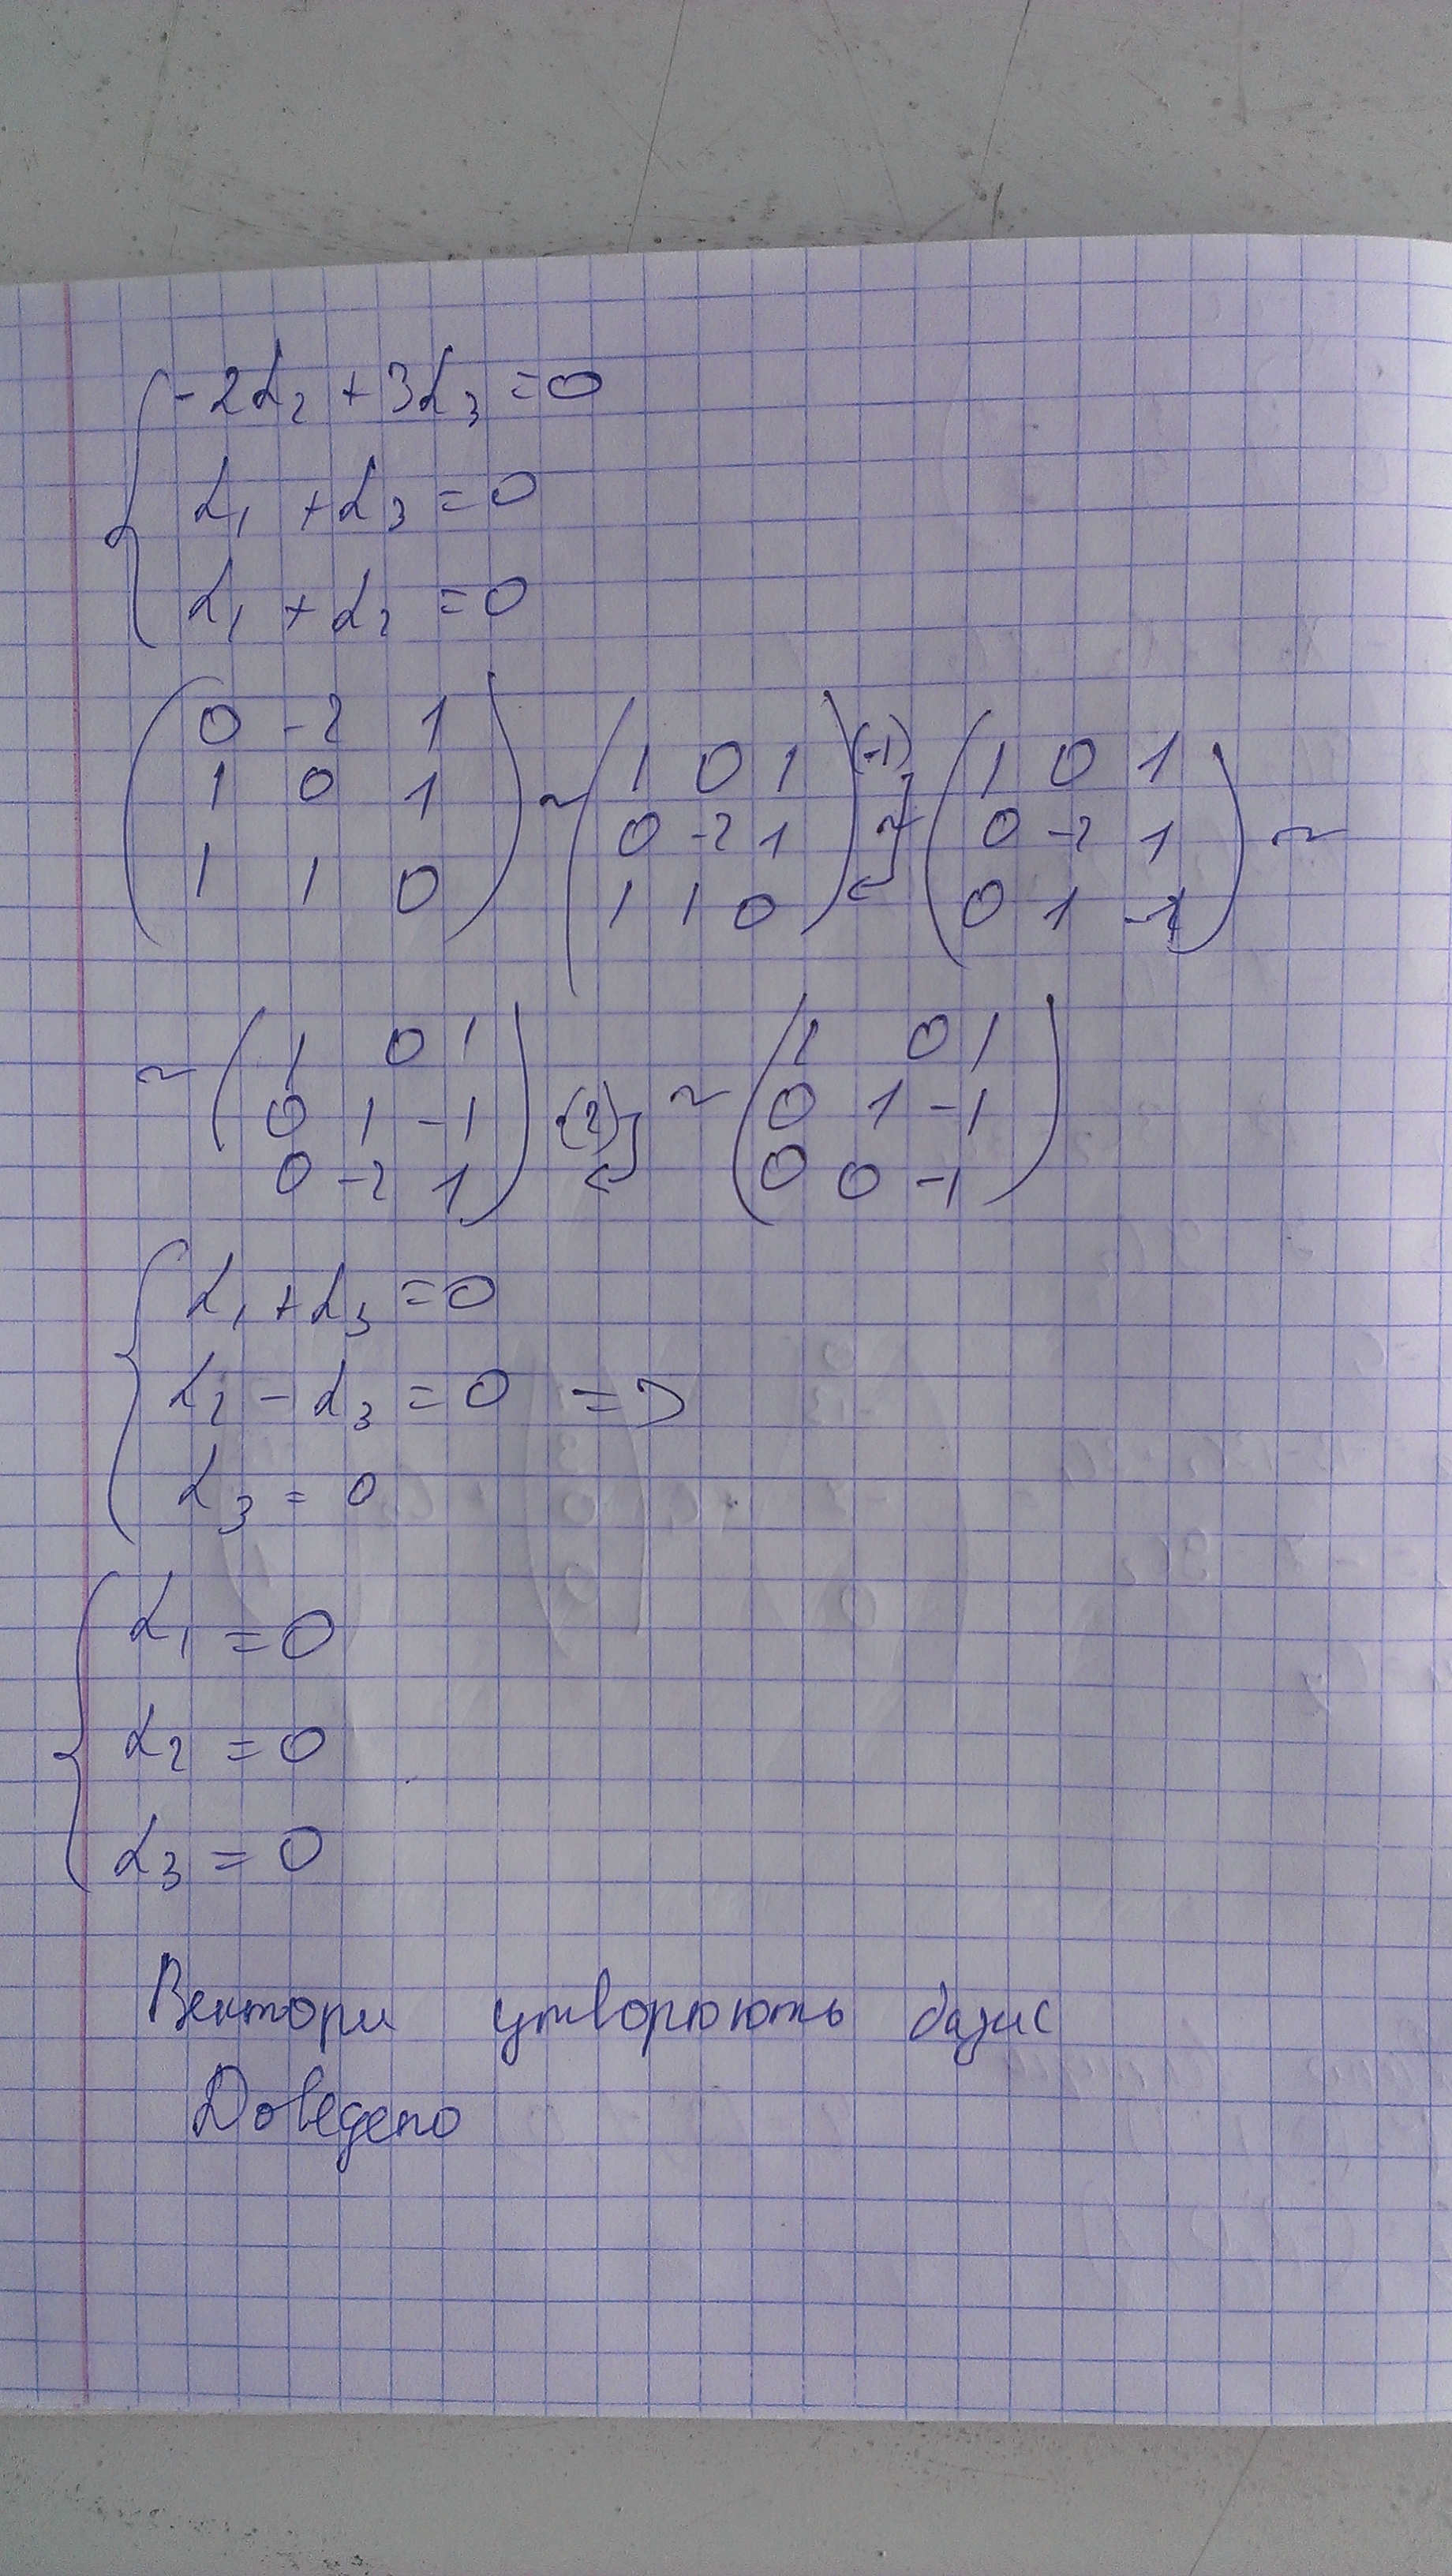 -2α₂ + 3α₃ = 0
α₁ + α₃ = 0
α₁ + α₂ = 0
( 0 -2 1 ; 1 0 1 ; 1 1 0 ) ~ ( 1 0 1 ; 0 -2 1 ; 1 1 0 ) (-1) ~ ( 1 0 1 ; 0 -2 1 ; 0 1 -1 ) ~
~ ( 1 0 1 ; 0 1 -1 ; 0 -2 1 ) ·(2) ~ ( 1 0 1 ; 0 1 -1 ; 0 0 -1 )
α₁ + α₃ = 0
α₂ - α₃ = 0 =>
α₃ = 0
α₁ = 0
α₂ = 0
α₃ = 0
Вектори утворюють базис
Доведено